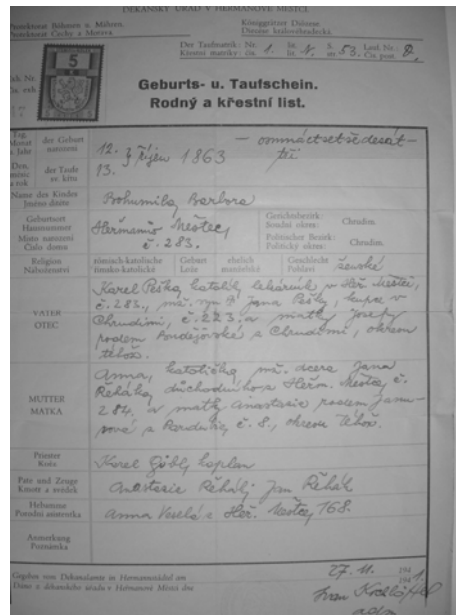 DĚKANSKÝ ÚŘAD V HEŘMANOVĚ MĚSTCI.
Protektorat Böhmen u. Mähren.
Protektorát Čechy a Morava.
Königgrätzer Diözese.
Diecése královéhradecká.
Der Taufmatrik: Nr. lit. S. Lauf. Nr.:
Křestní matriky: čís. 1. lit. N. str. 53. Čís. post.
5
Geburts- u. Taufschein.
Rodný a křestní list.
Tag, Monat u. Jahr
Den, měsíc a rok
der Geburt
narození
der Taufe
sv. křtu
12. říjen 1863
13.
— osmnáctsetšedesát-
tři
Name des Kindes
Jméno dítěte
Bohumila Barbora
Geburtsort
Hausnummer
Místo narození
Číslo domu
Heřmanův Městec,
č. 283.
Gerichtsbezirk:
Soudní okres:
Chrudim.
Politischer Bezirk:
Politický okres:
Chrudim.
Religion
Náboženství
römisch-katholische
římsko-katolické
Geburt
Lože
ehelich
manželské
Geschlecht
Pohlaví
ženské
VATER
OTEC
Karel Piška, katolík, lekárník v Heř. Městci,
č. 283., mž. syn Jana Pišky, kupce v
Chrudimi, č. 223. a matky Josefy
rodem z Chrudimi, okresu
téhož.
MUTTER
MATKA
Anna, katolička, mž. dcera Jana
Řeháka, důchodního z Heřm. Městce, č.
284. a matky Anastasie rodem
z Pardubic, č. 8., okresu téhož.
Priester
Kněz
Karel Göbl, kaplan
Pate und Zeuge
Kmotr a svědek
Anastasie Jan Řehák
Hebamme
Porodní asistentka
Anna Veselá z Heř. Městce, 168.
Anmerkung
Poznámka
Gegeben vom Dekanalamte in Hermannstädtel am
Dáno z děkanského úřadu v Heřmanově Městci dne
27. 11. 194 1.